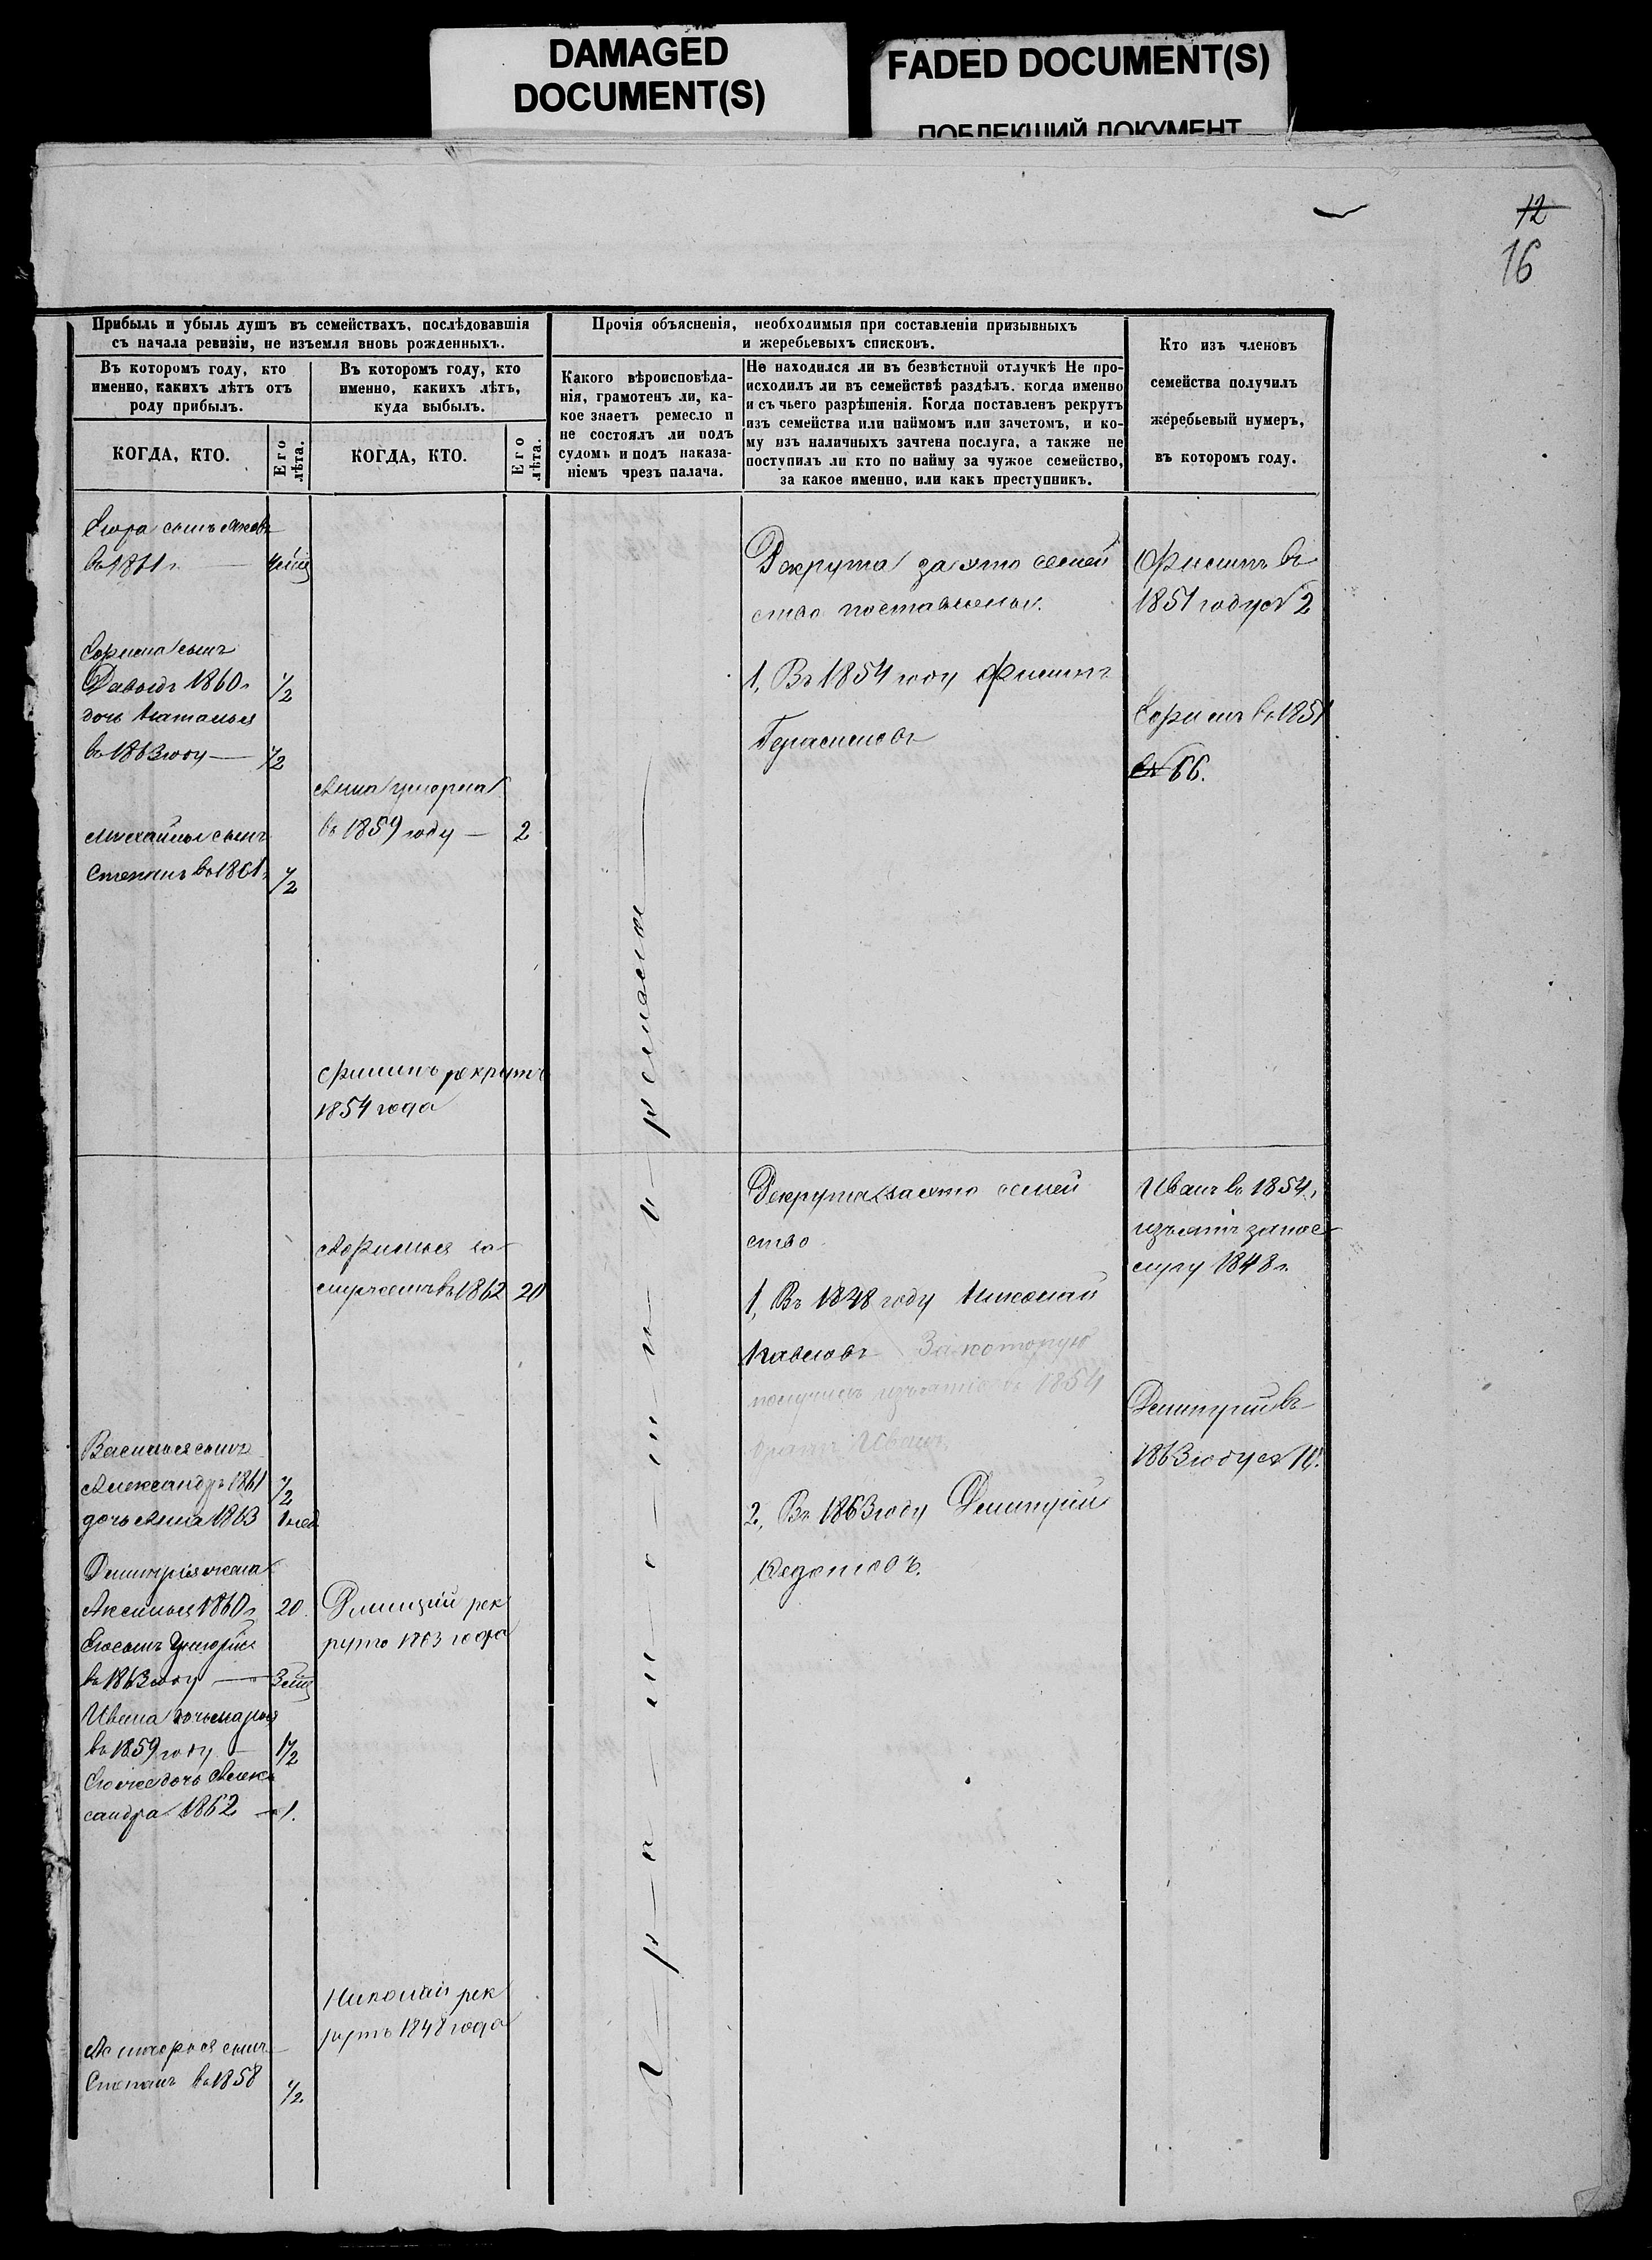 DAMAGED
DOCUMENT(S)
FADED DOCUMENT(S)
ПОБЛЕКШИЙ ДОКУМЕНТ
12
16
Прибыль и убыль душъ въ семействахъ, послѣдовавшія
съ начала ревизіи, не изъемля вновь рожденныхъ.
Въ которомъ году, кто
именно, какихъ лѣтъ отъ
роду прибылъ.
КОГДА, КТО.
Его лѣта.
Въ которомъ году, кто
именно, какихъ лѣтъ,
куда выбылъ.
КОГДА, КТО.
Его лѣта.
Прочія объясненія, необходимыя при составленіи призывныхъ
и жеребьевыхъ списковъ.
Какого вѣроисповѣда-
нія, грамотенъ ли, ка-
кое знаетъ ремесло и
не состоялъ ли подъ
судомъ и подъ наказа-
ніемъ чрезъ палача.
Не находился ли въ безвѣстной отлучкѣ Не про-
исходилъ ли въ семействѣ раздѣлъ. когда именно
и съ чьего разрѣшенія. Когда поставленъ рекрутъ
изъ семейства или наймомъ или зачетомъ, и ко-
му изъ наличныхъ зачтена послуга, а также не
поступилъ ли кто по найму за чужое семейство,
за какое именно, или какъ преступникъ.
Кто изъ членовъ
семейства получилъ
жеребьевый нумеръ,
въ которомъ году.
сынъ
въ 1861 г.
сынъ
Давыдъ 1860 г. 1/2
дочь Наталья
въ 1863 году — 1/2
Михайлы сынъ
Степанъ въ 1861 1/2
Анна умерла
въ 1859 году — 2
Филипъ рекрутъ
1854 года
Рекрута за это семей
ство поставлены.
1, Въ 1854 году Филипъ
Герасимовъ
Филипъ въ
1851 году № 2
въ 1851
№ 66.
Васильея сынъ
Александръ 1861 1/2
дочь Анна 1863 1 нед
Димитрія жена
Аксинья 1860 г. 20.
Его сынъ Григорій
въ 1863 году — 3
Ивана дочь Марья
въ 1859 году — 1 1/2
Его же дочь Алек
сандра 1862 — 1.
сынъ
Степанъ въ 1858 1/2
Афимья за
мужемъ въ 1862 20
Димитрій рек
рутъ 1863 года
Николай рек
рутъ 1848 года
Рекрута за это семей
ство
1, Въ 1848 году Николай
Павловъ За которую
получилъ изъятіе въ 1854
братъ Иванъ
2, Въ 1863 году Димитрій
Федотовъ.
Иванъ въ 1854,
изъятъ за пос
лугу 1848 г.
Димитрій въ
1863 году №